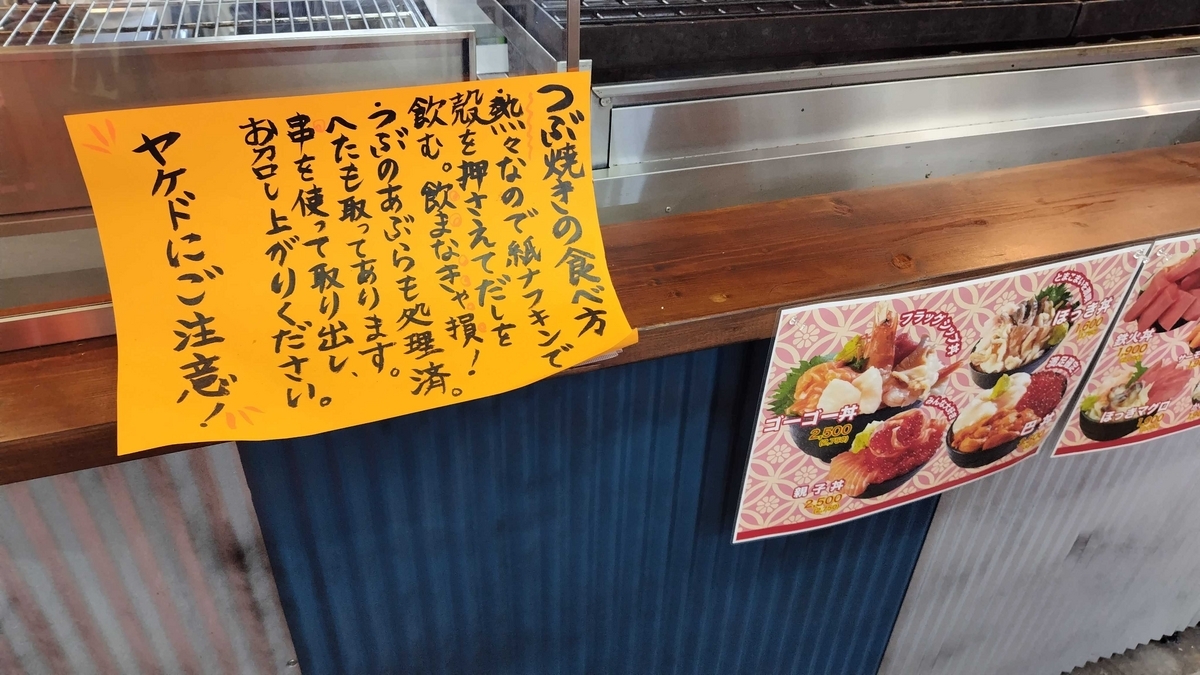 つぶ焼きの食べ方
熱々なので紙ナフキンで
殻を押さえてだしを
飲む。飲まなきゃ損！
つぶのあぶらも処理済。
へたも取ってあります。
串を使って取り出し、
お召し上がりください。
ヤケドにご注意！
フラッグシップ丼
ゴーゴー丼
2,500
みんな大好き
親子丼
2,500
とまこまいを満喫
ほっき丼
1,600
鉄火丼
1,900
ほっきマグロ